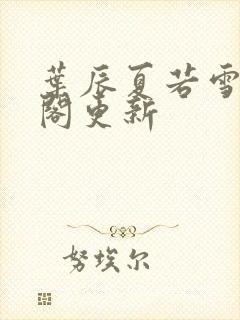 葉辰夏若雪
閣更新
努埃尔